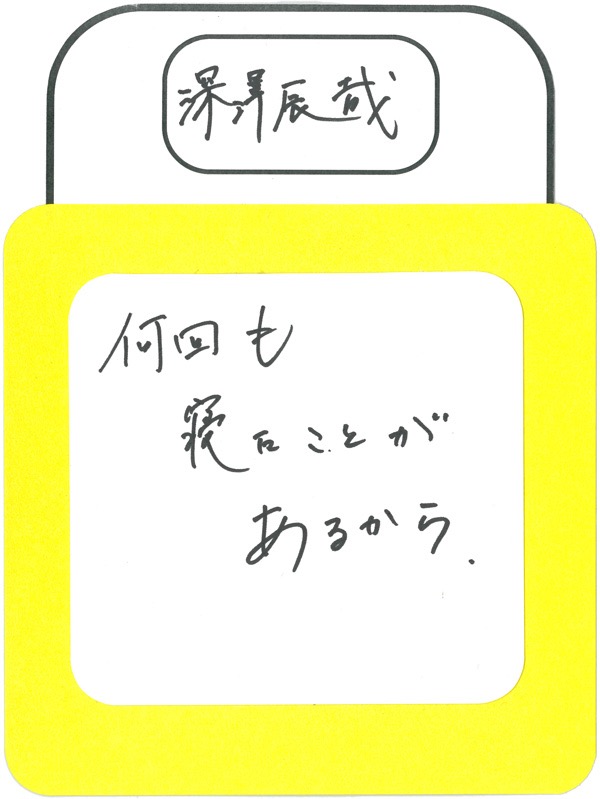 深澤辰哉
何回も
寝たことが
あるから.